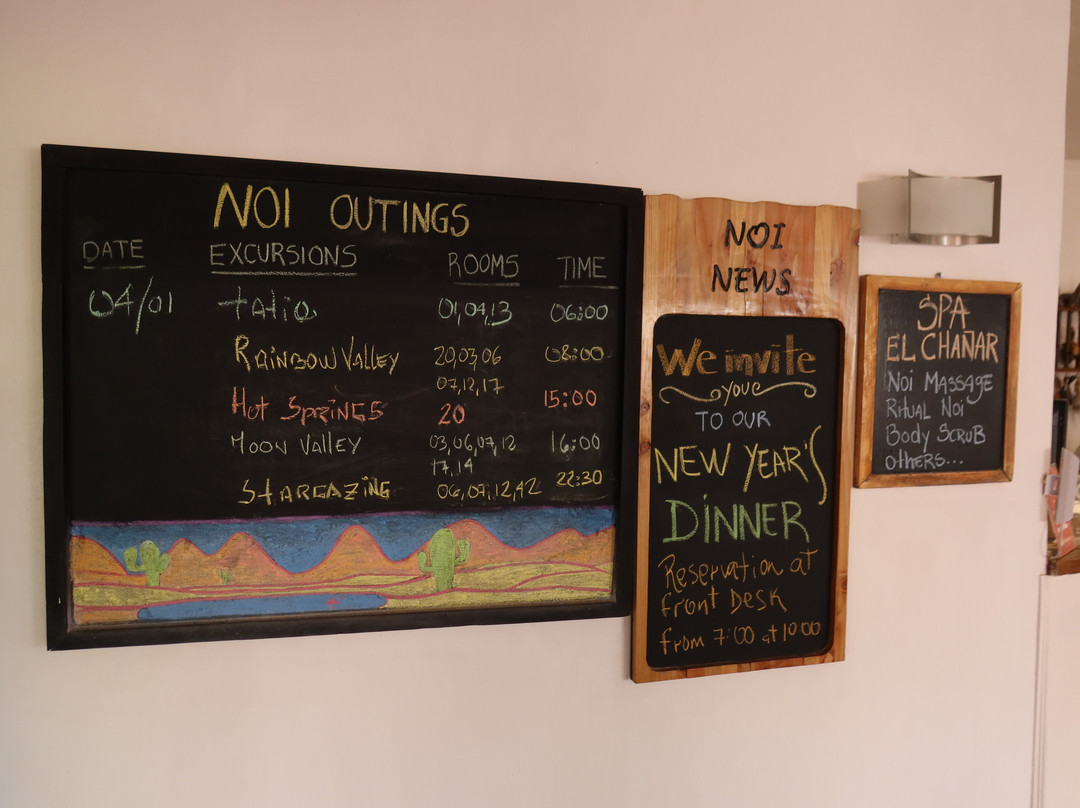 NOI OUTINGS
DATE EXCURSIONS ROOMS TIME
04/01 tatio 01,04,13 06:00
RAINBOW VALLEY 20,03,06 08:00
07,12,17
Hot SPRINGS 20 15:00
MOON VALLEY 03,06,07,12 16:00
17,14
STARGAZING 06,07,12,42 22:30
NOI
NEWS
We invite
you
TO OUR
NEW YEAR'S
DINNER
Reservation at
front Desk
from 7:00 at 10:00
SPA
EL CHAÑAR
NOI MASSAGE
RITUAL NOI
Body SCRUB
others...